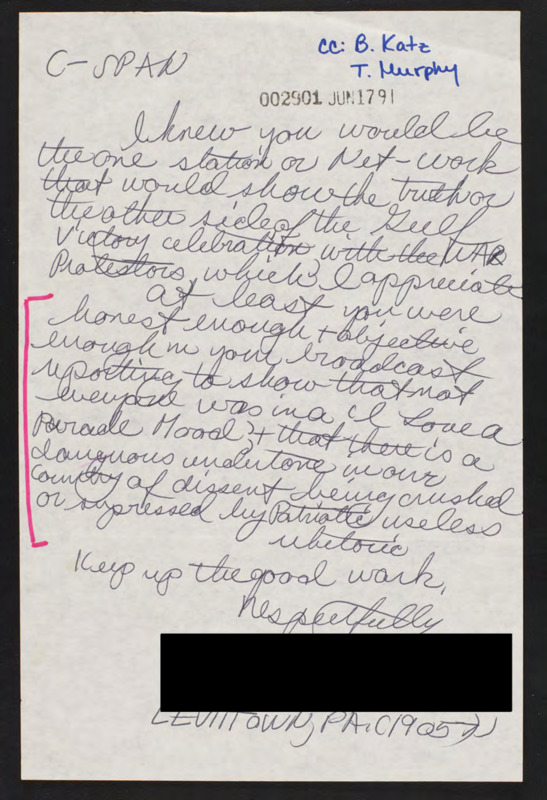 C-SPAN
cc: B. Katz
T. Murphy
002901 JUN1791
I knew you would be
the one station or Net-work
that would show the truth or
the other side of the Gulf
Victory celebration with the WAR
Protestors, which I appreciate
At least you were
honest enough + objective
enough in your broadcast
reporting to show that not
everyone was in a "I Love a
Parade Mood", + that there is a
dangerous undertone in our
Country of dissent being crushed
or supressed by Patriotic useless
rhetoric
Keep up the good work.
Respectfully
LEVITTOWN, PA. (19057)